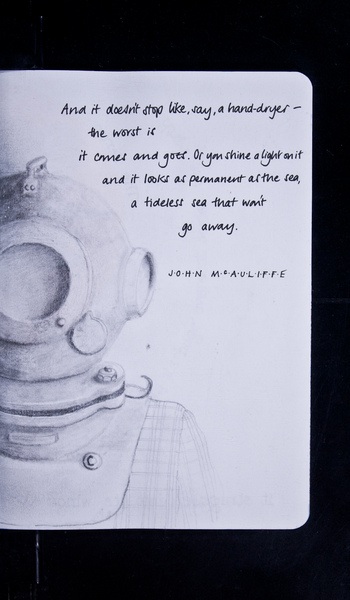 And it doesn't stop like, say, a hand-dryer –
the worst is
it comes and goes. Or you shine a light on it
and it looks as permanent as the sea,
a tideless sea that won't
go away.
J·O·H·N M·c·A·U·L·I·F·F·E